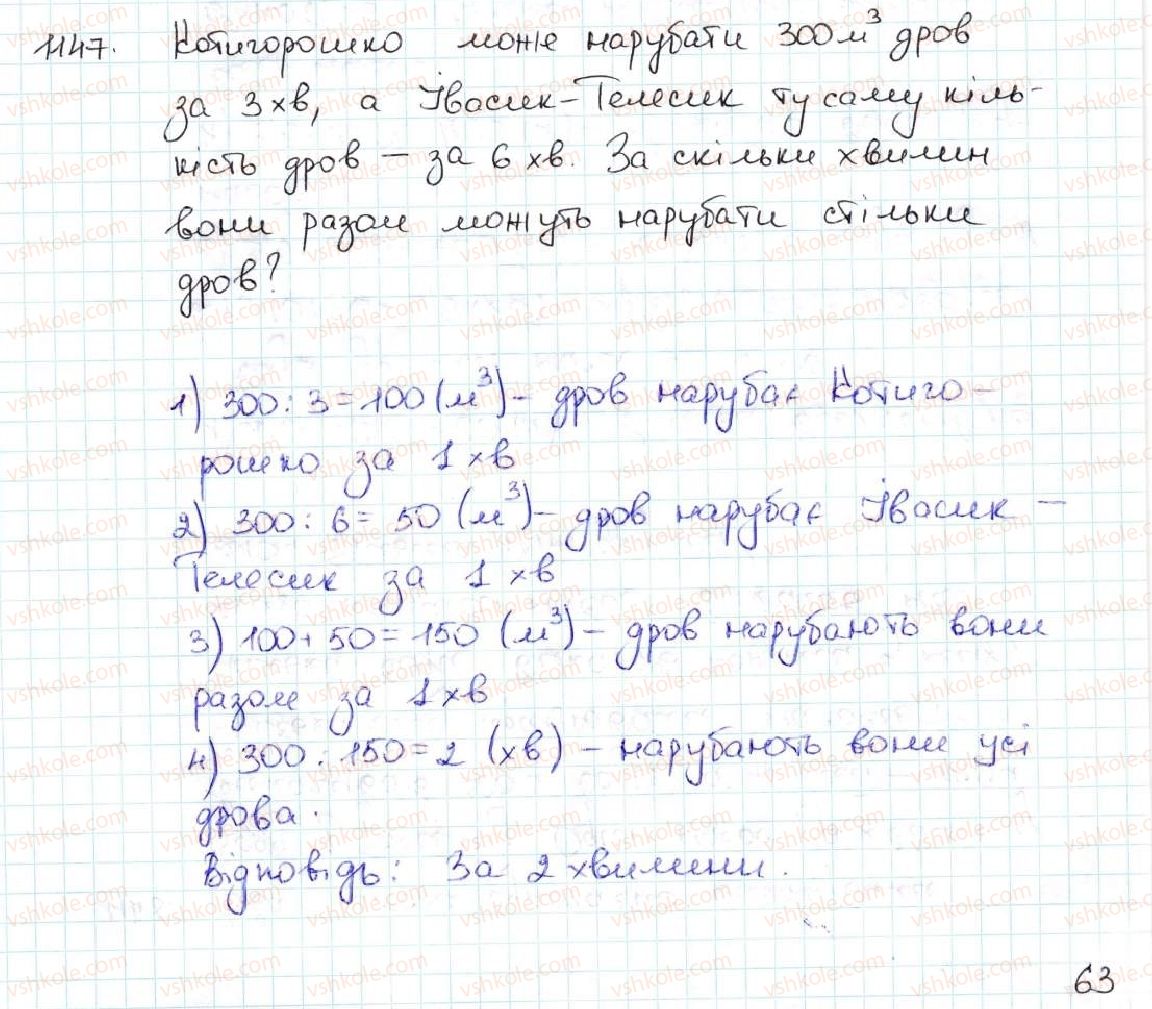 1147. Котигорошко може нарубати 300 м³ дров
за 3 хв, а Івасик-Телесик ту саму кіль-
кість дров – за 6 хв. За скільки хвилин
вони разом можуть нарубати стільки
дров?
1) 300 : 3 = 100 (м³) – дров нарубає Котиго-
рошко за 1 хв
2) 300 : 6 = 50 (м³) – дров нарубає Івасик –
Телесик за 1 хв
3) 100 + 50 = 150 (м³) – дров нарубають вони
разом за 1 хв
4) 300 : 150 = 2 (хв) – нарубають вони усі
дрова.
Відповідь: За 2 хвилини.
63